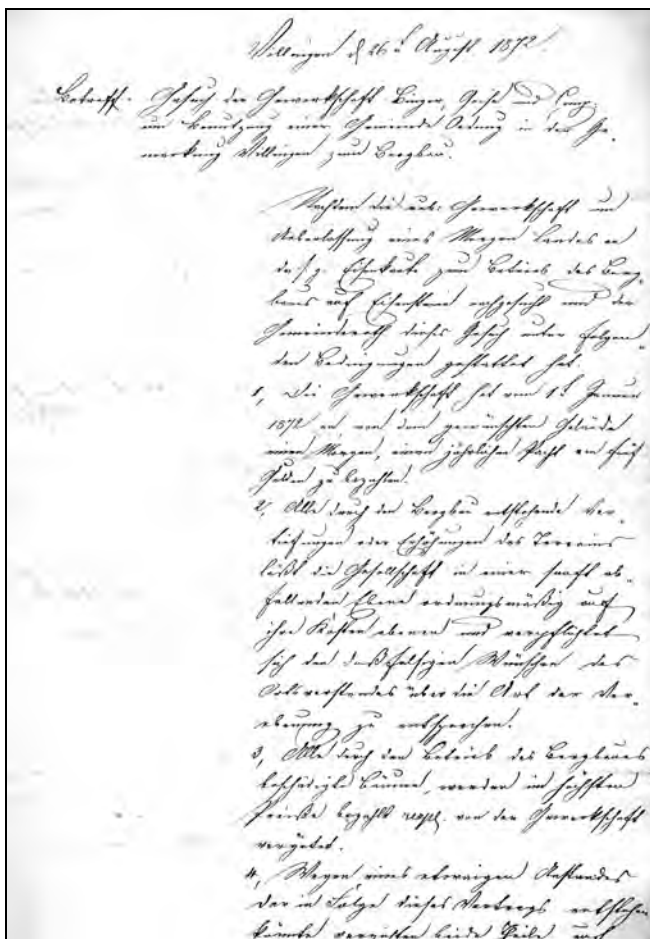 Villingen d 26t August 1872.
Betreff. Gesuch der Gewerkschaft Binger, und Comp.
um Benutzung einer Gemeinde Oedung in der Ge-
markung Villingen zum Bergbau.
Nachdem die rub. Gewerkschaft um
Ueberlassung eines Morgen Landes an
der s. g. Eisenkaute zum Betrieb des Berg-
baus auf Eisenstein nachgesucht und der
Gemeinderath dieses Gesuch unter folgen-
den Bedingungen gestattet hat.
1, Die Gewerkschaft hat vom 1t Januar
1872 an von dem gewünschten Gelände
einen Morgen, einen jährlichen Pacht von fünf
Gulden zu bezahlen.
2, Alle durch den Bergbau entstehende Ver-
tiefungen oder Erhöhungen des Terrains
läßt die Gesellschaft in einer sanft ab-
fallenden Ebene ordnungsmäßig auf
ihre Kosten ebenen und verpflichtet
sich den desfalsigen Wünschen des
Ortsvorstandes über die Art der Ver-
ebenung zu entsprechen.
3, Alle durch den Betrieb des Bergbaues
beschädigte Bäume, werden im höchsten
Preiße bezahlt resp. von der Gewerkschaft
vergütet.
4, Wegen eines etwaigen Anstandes
der in Folge dieses Vertrags entstehen
könnte verzichten beide Theile auf